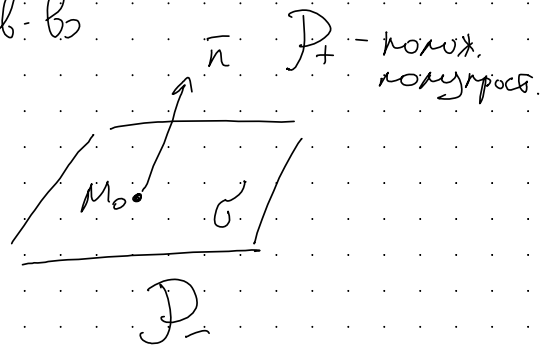 в-вэ
n̄ P₊ - полож.
полупрост.
M₀ σ
P₋